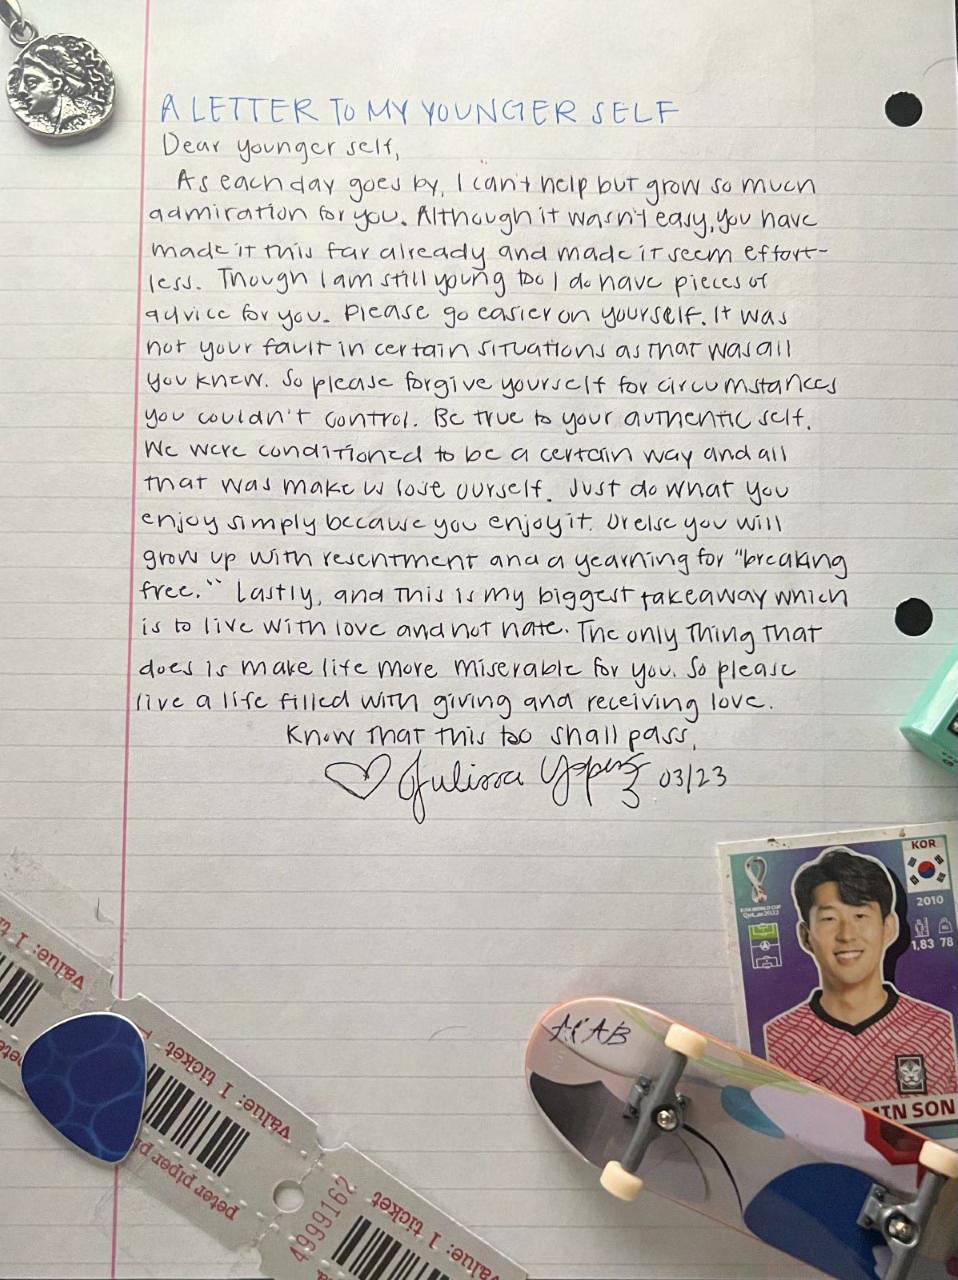 A LETTER TO MY YOUNGER SELF
Dear younger self,
As each day goes by, I can't help but grow so much
admiration for you. Although it wasn't easy, you have
made it this far already and made it seem effort-
less. Though I am still young too I do have pieces of
advice for you. Please go easier on yourself. It was
not your fault in certain situations as that was all
you knew. So please forgive yourself for circumstances
you couldn't control. Be true to your authentic self.
We were conditioned to be a certain way and all
that was make us lose ourself. Just do what you
enjoy simply because you enjoy it. Or else you will
grow up with resentment and a yearning for "breaking
free." Lastly, and this is my biggest takeaway which
is to live with love and not hate. The only thing that
does is make life more miserable for you. So please
live a life filled with giving and receiving love.
Know that this too shall pass,
Julissa Yopez 03/23
KOR
2010
1,83 78
FIFA WORLD CUP
Qatar 2022
MIN SON
ACAB
value: 1 ti
value: 1 ticket
peter piper p
4999162
value: 1 ticket